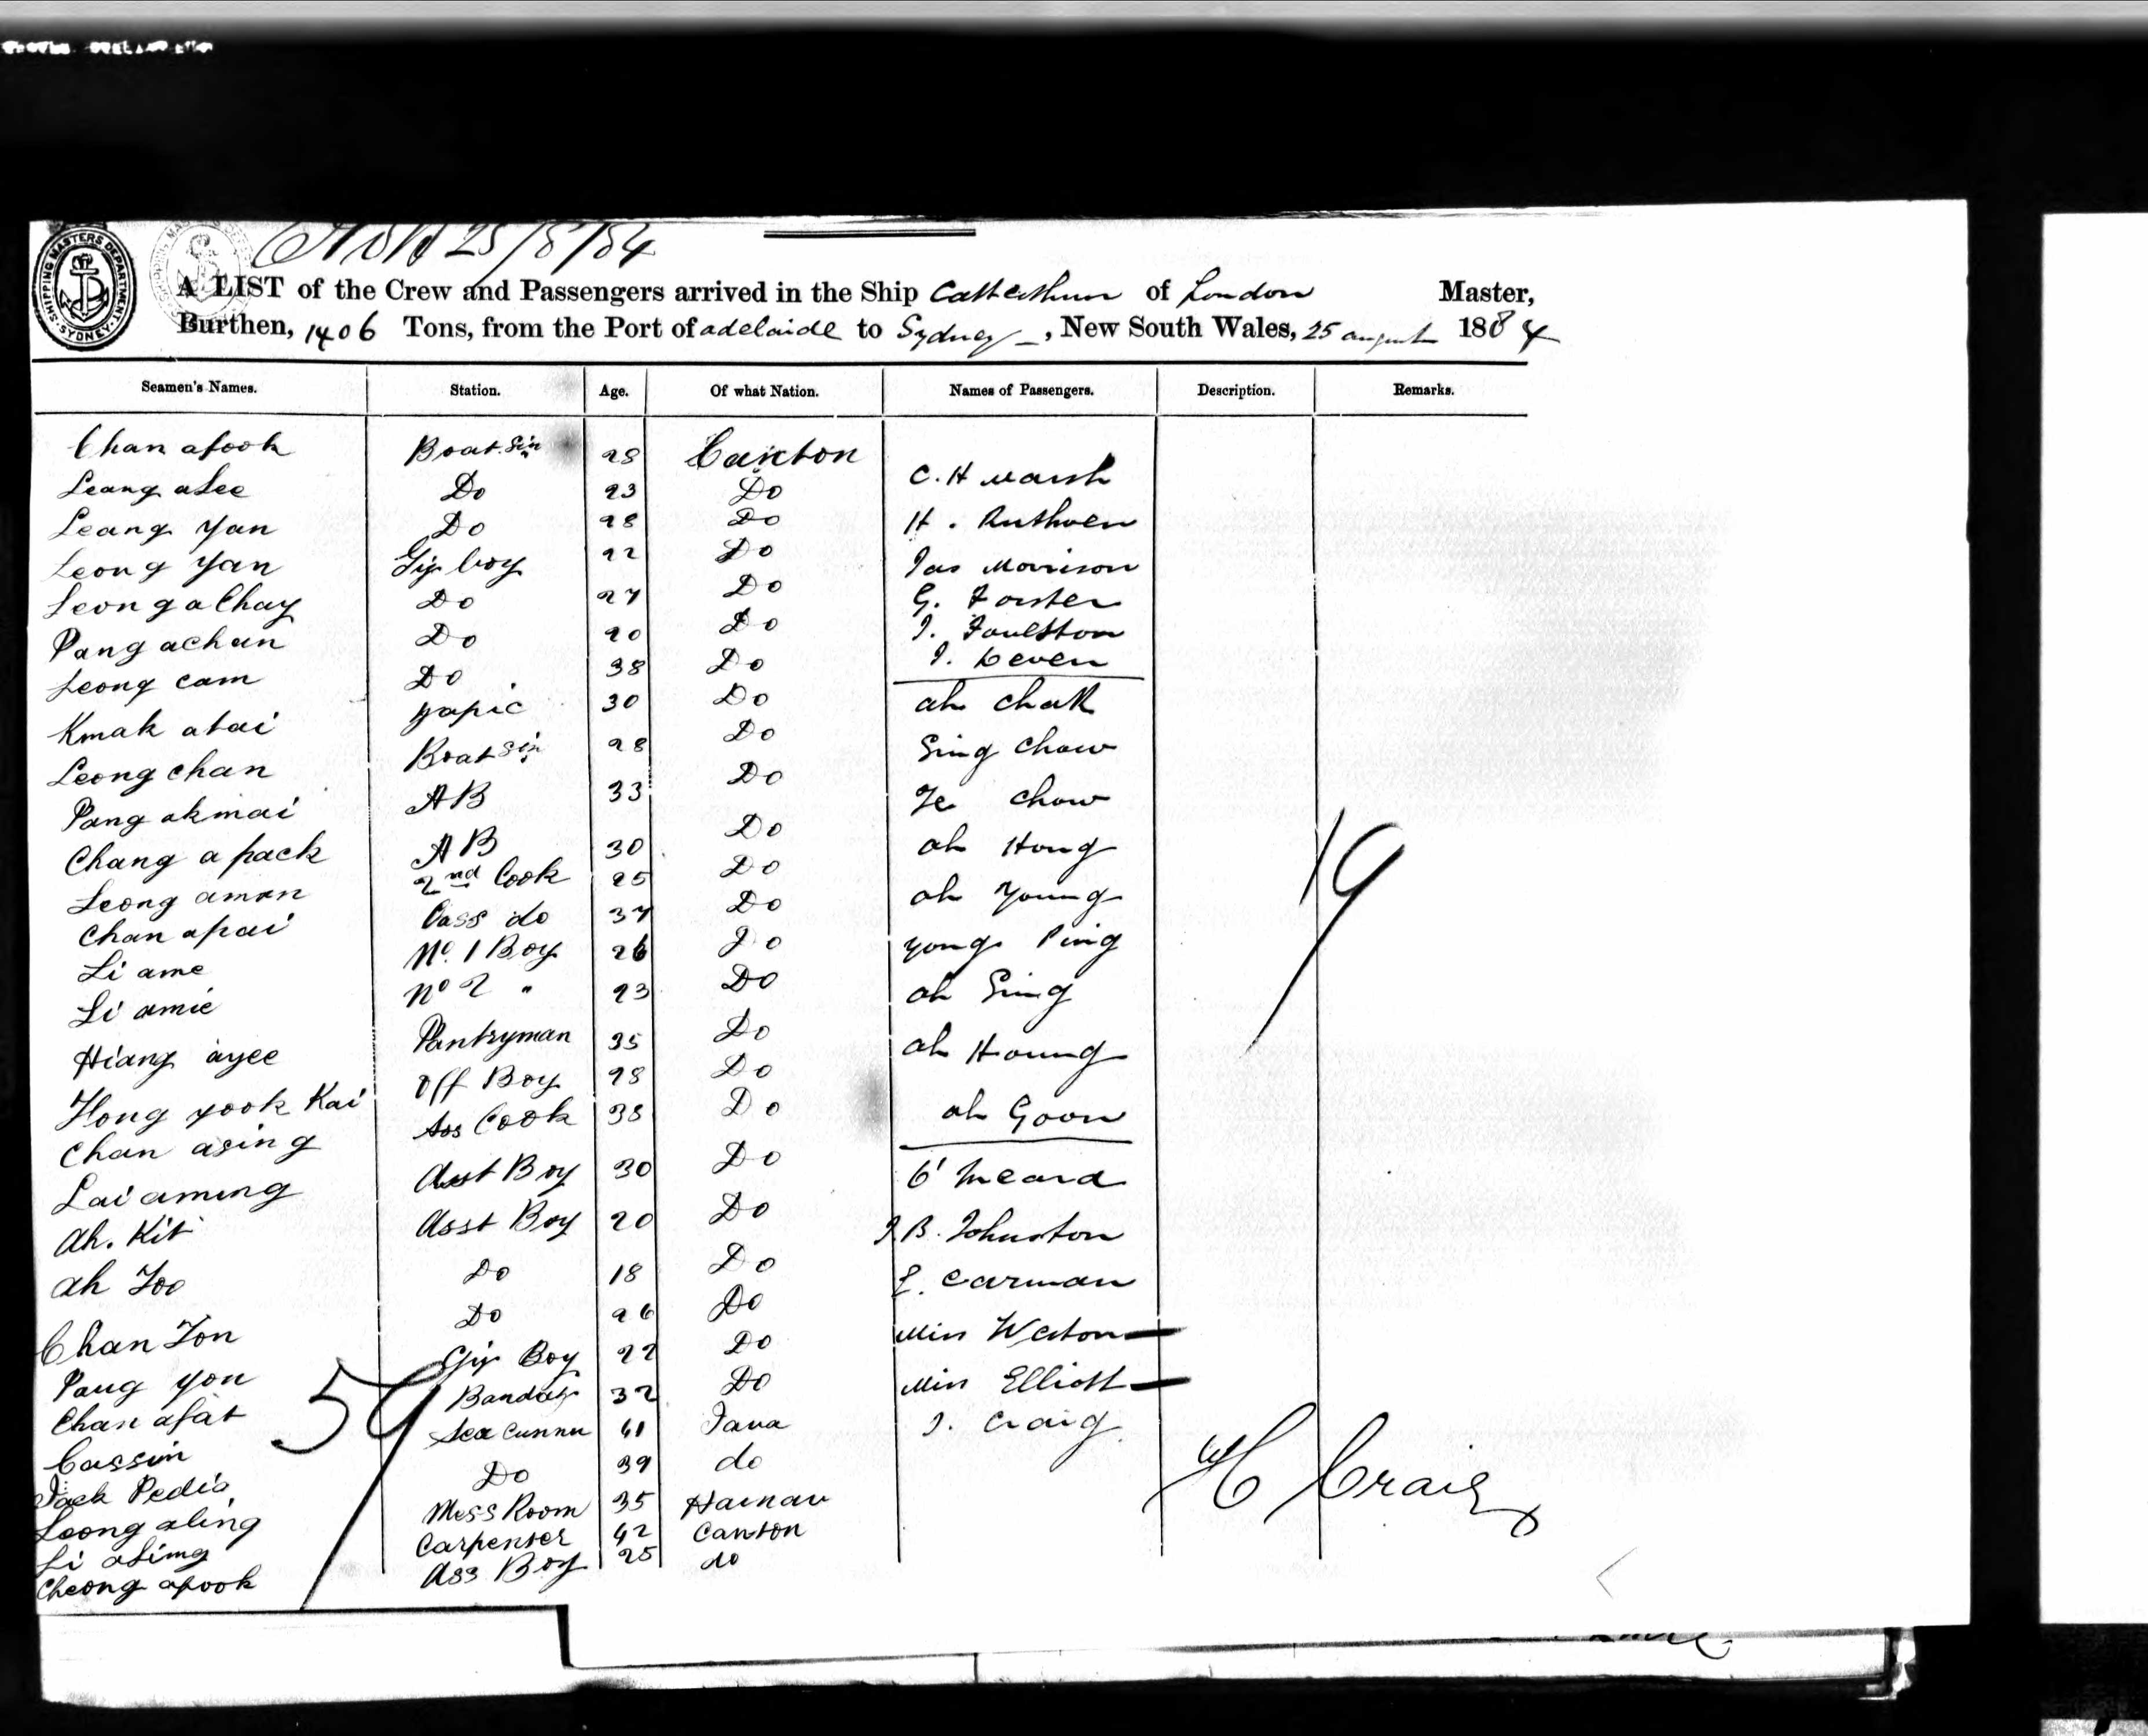 SHIPPING MASTERS DEPARTMENT SYDNEY
25/8/84
A LIST of the Crew and Passengers arrived in the Ship Catterthun of London Master,
Burthen, 1406 Tons, from the Port of adelaide to Sydney, New South Wales, 25 august 1884
Seamen's Names. Station. Age. Of what Nation. Names of Passengers. Description. Remarks.
Chan afook Boatsin 28 Canton C. H Marsh
Leang aLee Do 23 Do H. Ruthven
Leang Yan Do 28 Do Jas Morrison
Leong Yan boy 22 Do G. Forster
Leong aChay Do 27 Do J. Foulston
Pang achun Do 20 Do J. Deven
Leong cam Do 38 Do ah Chak
Kmak atai 30 Do Sing Chow
Leong chan Boatsin 28 Do Chow
Pang akmai AB 33 Do ah Hong
Chang a pack AB 30 Do ah Young
Leong aman 2nd Cook 25 Do Yong Ping
Chan apai Cass do 37 Do ah Sing
Li ame No. 1 Boy 26 Do ah Houng
Li amie No 2 " 23 Do ah Goon
Hiang ayee Pantryman 35 Do Meard
Hong yook Kai Off Boy 28 Do J. B. Johnston
Chan asing Ass Cook 38 Do E. Carman
Lai aming Asst Boy 30 Do Miss Weston
Ah. Kit Asst Boy 20 Do Miss Elliott
Ah Foo Do 18 Do J. Craig
Chan Fon Do 26 Do
Pang yon Boy 22 Do
Chan afat 32 Do
Cassim Sea Cunnu 41 Java
Jack Pedia Do 39 do
Leong aling Mess Room 35 Hainan
Li asimg Carpenter 42 Canton
Cheong afook Ass Boy 25 do
59
19
Craig